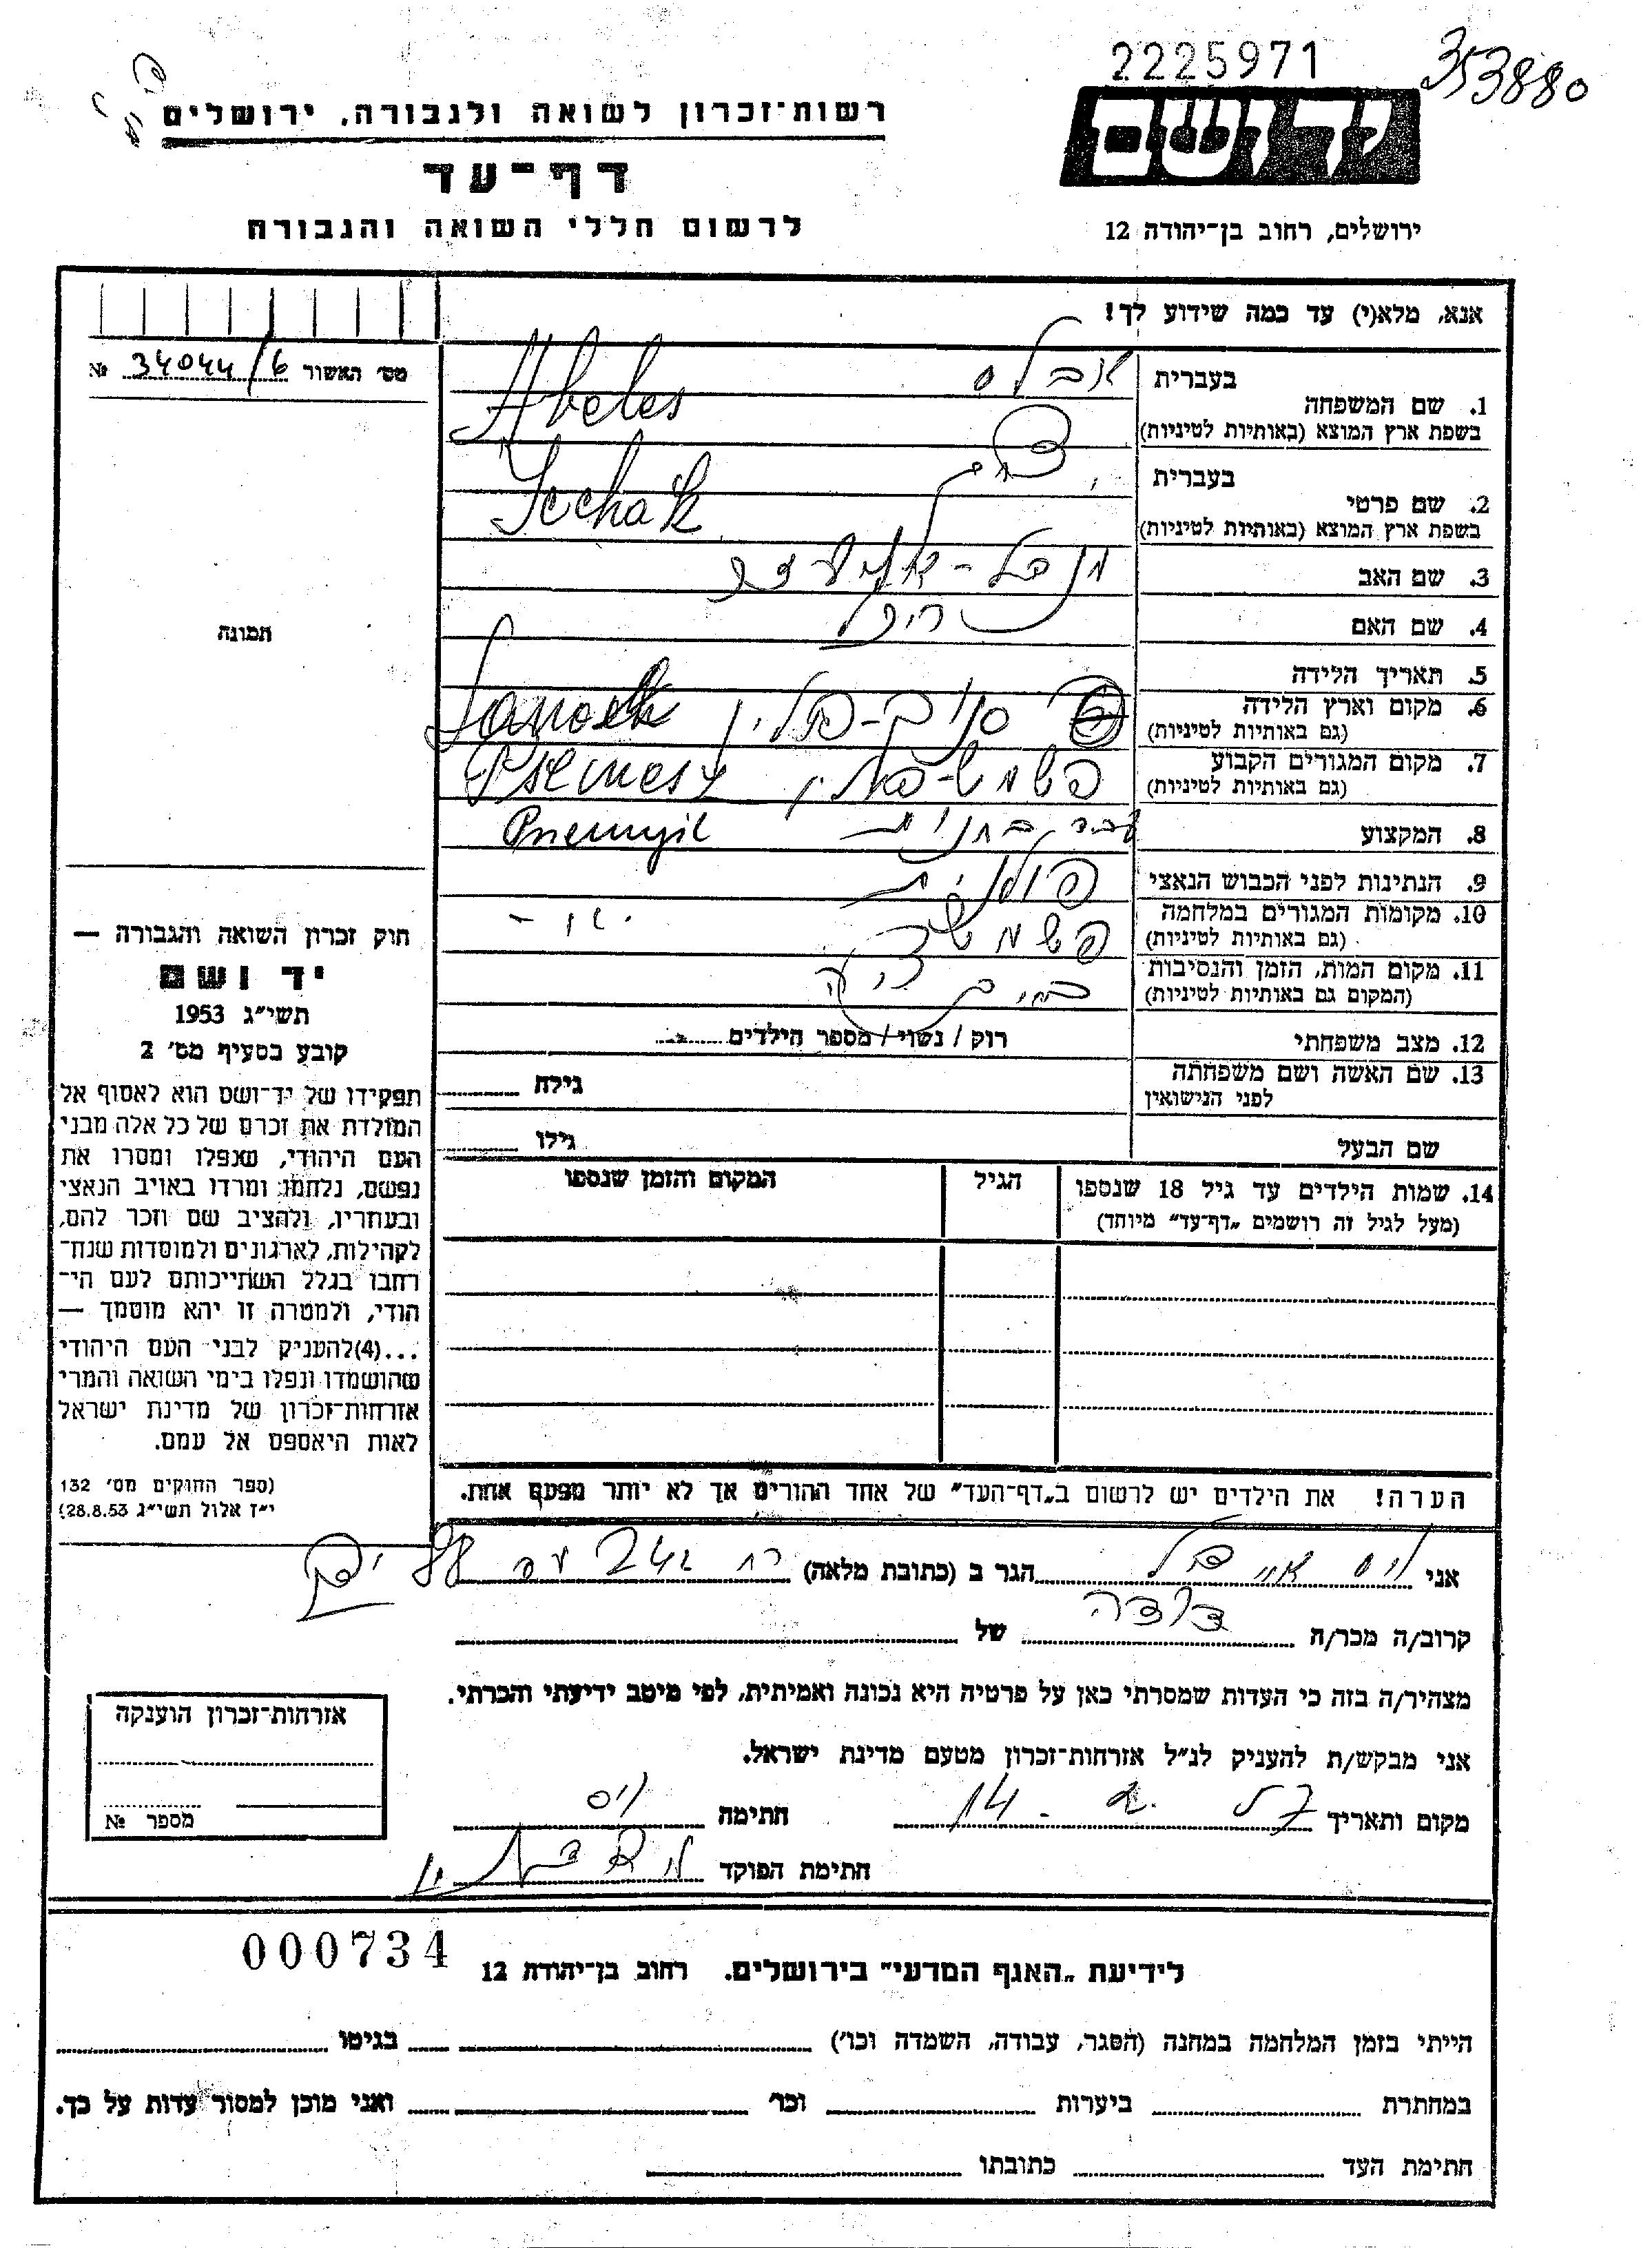 2225971
353880
רשות־זכרון לשואה ולגבורה, ירושלים
יד ושם
דף־עד
לרשום חללי השואה והגבורה
ירושלים, רחוב בן־יהודה 12
אנא, מלא(י) עד כמה שידוע לך!
מס׳ האשור 34044/6 №
בעברית אבלס
1. שם המשפחה
בשפת ארץ המוצא (באותיות לטיניות) Abeles
בעברית יצחק
2. שם פרטי
בשפת ארץ המוצא (באותיות לטיניות) Icchak
3. שם האב
4. שם האם
תמונה
5. תאריך הלידה
6. מקום וארץ הלידה סנוק-פולין Sanok
(גם באותיות לטיניות)
7. מקום המגורים הקבוע
(גם באותיות לטיניות)
8. המקצוע
9. הנתינות לפני הכבוש הנאצי פולנית
10. מקומות המגורים במלחמה
(גם באותיות לטיניות)
11. מקום המות, הזמן והנסיבות
(המקום גם באותיות לטיניות)
12. מצב משפחתי רוק / נשוי / מספר הילדים
13. שם האשה ושם משפחתה גילה
לפני הנישואין
שם הבעל גילו
14. שמות הילדים עד גיל 18 שנספו הגיל המקום והזמן שנספו
(מעל לגיל זה רושמים „דף־עד״ מיוחד)
הערה! את הילדים יש לרשום ב„דף־העד״ של אחד ההורים אך לא יותר מפעם אחת.
חוק זכרון השואה והגבורה —
יד ושם
תשי״ג 1953
קובע בסעיף מס׳ 2
תפקידו של יד־ושם הוא לאסוף אל
המולדת את זכרם של כל אלה מבני
העם היהודי, שנפלו ומסרו את
נפשם, נלחמו ומרדו באויב הנאצי
ובעוזריו, ולהציב שם וזכר להם,
לקהילות, לארגונים ולמוסדות שנח־
רבו בגלל השתייכותם לעם הי־
הודי, ולמטרה זו יהא מוסמך —
...(4)להעניק לבני העם היהודי
שהושמדו ונפלו בימי השואה והמרי
אזרחות־זכרון של מדינת ישראל
לאות היאספם אל עמם.
(ספר החוקים מס׳ 132
י״ז אלול תשי״ג 28.8.53)
אני הגר ב (כתובת מלאה)
קרוב/ה מכר/ה דודה של
מצהיר/ה בזה כי העדות שמסרתי כאן על פרטיה היא נכונה ואמיתית, לפי מיטב ידיעתי והכרתי.
אני מבקש/ת להעניק לנ״ל אזרחות־זכרון מטעם מדינת ישראל.
מקום ותאריך חתימה
חתימת הפוקד
אזרחות־זכרון הוענקה
מספר №
000734
לידיעת „האגף המדעי״ בירושלים. רחוב בן־יהודה 12
הייתי בזמן המלחמה במחנה (הסגר, עבודה, השמדה וכו׳) בגיטו
במחתרת ביערות וכו׳ ואני מוכן למסור עדות על כך.
חתימת העד כתובתו